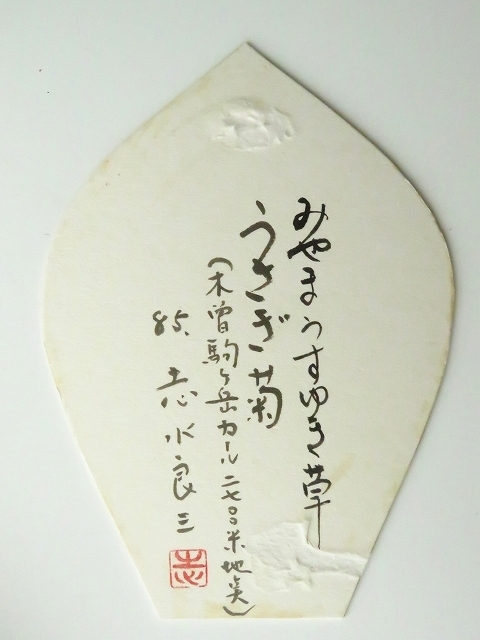 みやまうすゆき草
うさぎ菊
(木曽駒ヶ岳カール二七〇〇米地点)
85. 志水良三
志